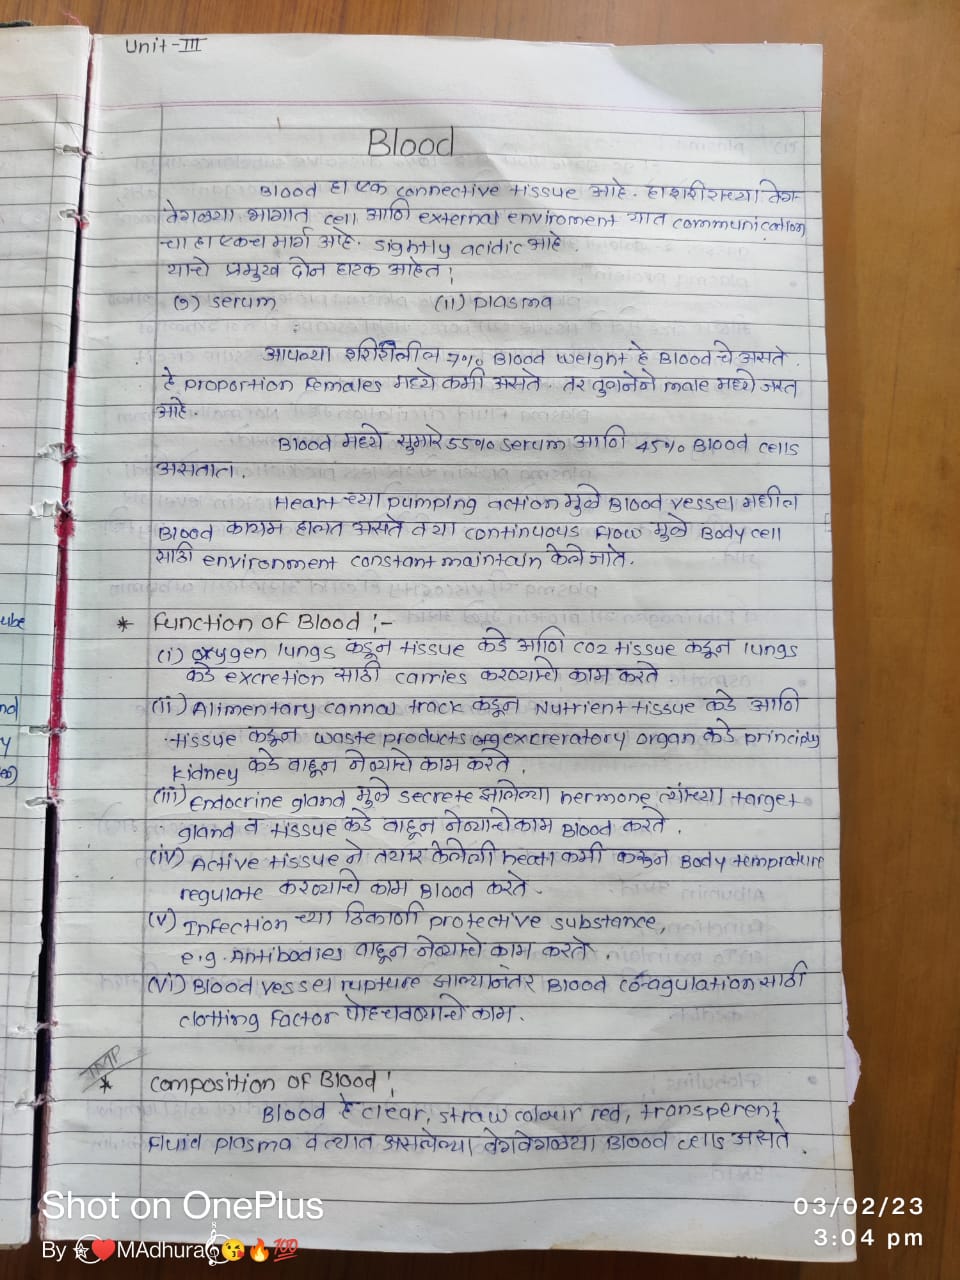 Unit-III
Blood
Blood हा एक connective tissue आहे. हा शरीराच्या वेग-
वेगळ्या भागात cell आणि external enviroment यात communication
चा हा एकच मार्ग आहे. sightly acidic आहे.
याचे प्रमुख दोन घटक आहेत;
(i) serum (ii) plasma
आपल्या शरीरातील 7% Blood weight हे Blood चे असते.
हे proportion females मध्ये कमी असते. तर तुलनेने male मध्ये जास्त
आहे.
Blood मध्ये सुमारे 55% serum आणि 45% Blood cells
असतात.
Heart च्या pumping action मुळे Blood vessel मधील
Blood कायम हालत असते व या continuous flow मुळे Body cell
साठी environment constant maintain केले जाते.
* Function of Blood :-
(i) oxygen lungs कडून tissue कडे आणि co2 tissue कडून lungs
कडे excretion साठी carries करण्याचे काम करते.
(ii) Alimentary cannal track कडून Nutrient tissue कडे आणि
tissue कडून waste products excreratory organ कडे principly
kidney कडे वाहून नेण्याचे काम करते.
(iii) endocrine gland मुळे secrete झालेल्या hermone त्यांच्या target
gland व tissue कडे वाहून नेण्याचे काम Blood करते.
(iv) Active tissue ने तयार केलेली heat कमी करून Body temprature
regulate करण्याचे काम Blood करते.
(v) Infection च्या ठिकाणी protective substance,
e.g. Antibodies वाहून नेण्याचे काम करते.
(vi) Blood vessel rupture झाल्यानंतर Blood co-agulation साठी
clotting factor पोहचवण्याचे काम.
IMP
* composition of Blood :
Blood हे clear, straw colour red, transperent
fluid plasma व त्यात असलेल्या वेगवेगळ्या Blood cells असते.
ube
nd
y
Shot on OnePlus
By MAdhura
03/02/23
3:04 pm